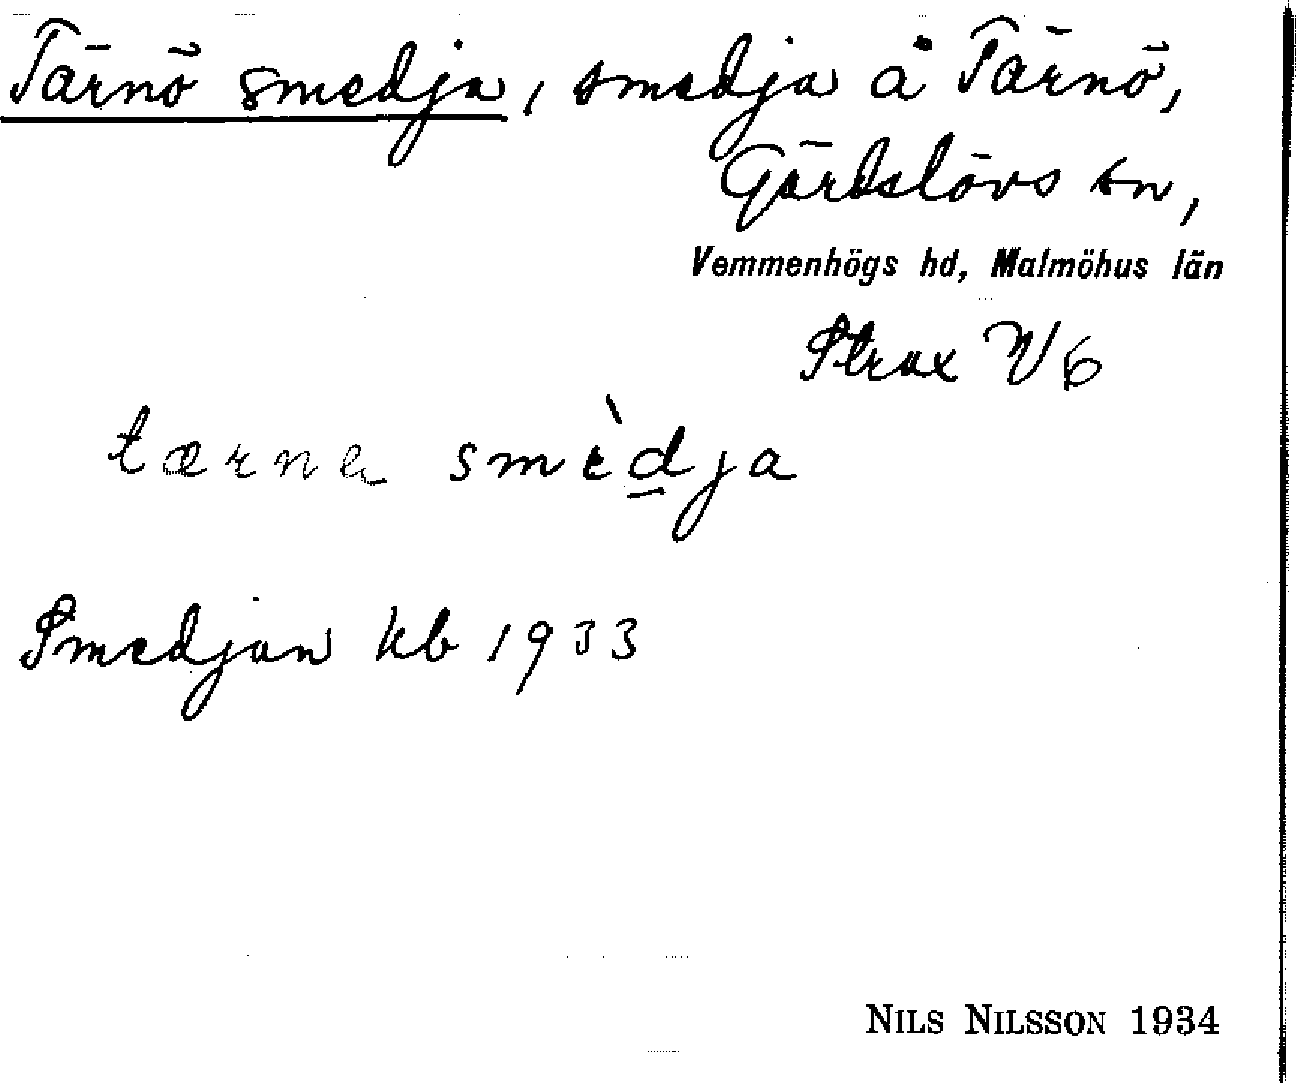 Tärnö smedja, smedja å Tärnö,
Gärdslövs sn,
Vemmenhögs hd, Malmöhus län
Strax V 6
tærne smèd̲ja
Smedjan kb 1933
NILS NILSSON 1934